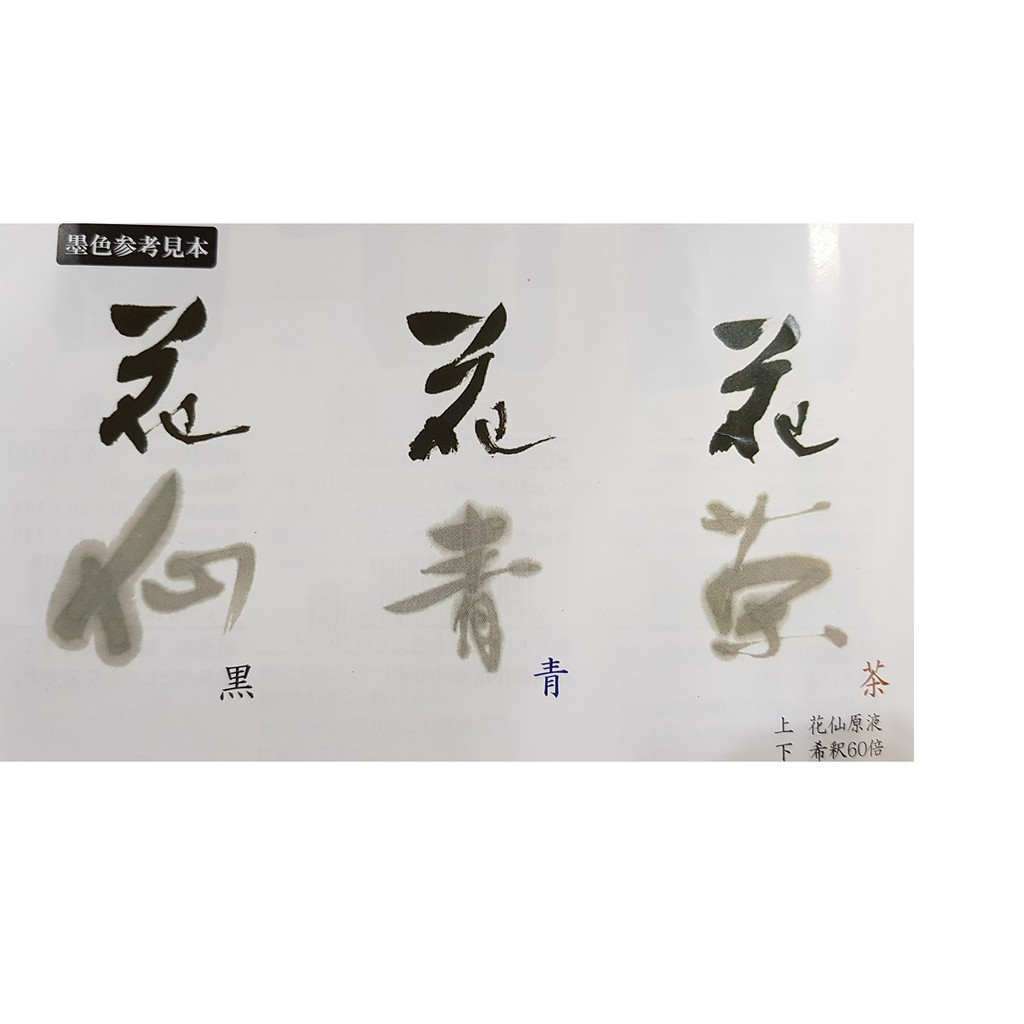 墨色参考見本
花 花 花
仙 青 茶
黒 青 茶
上 花仙原液
下 希釈60倍